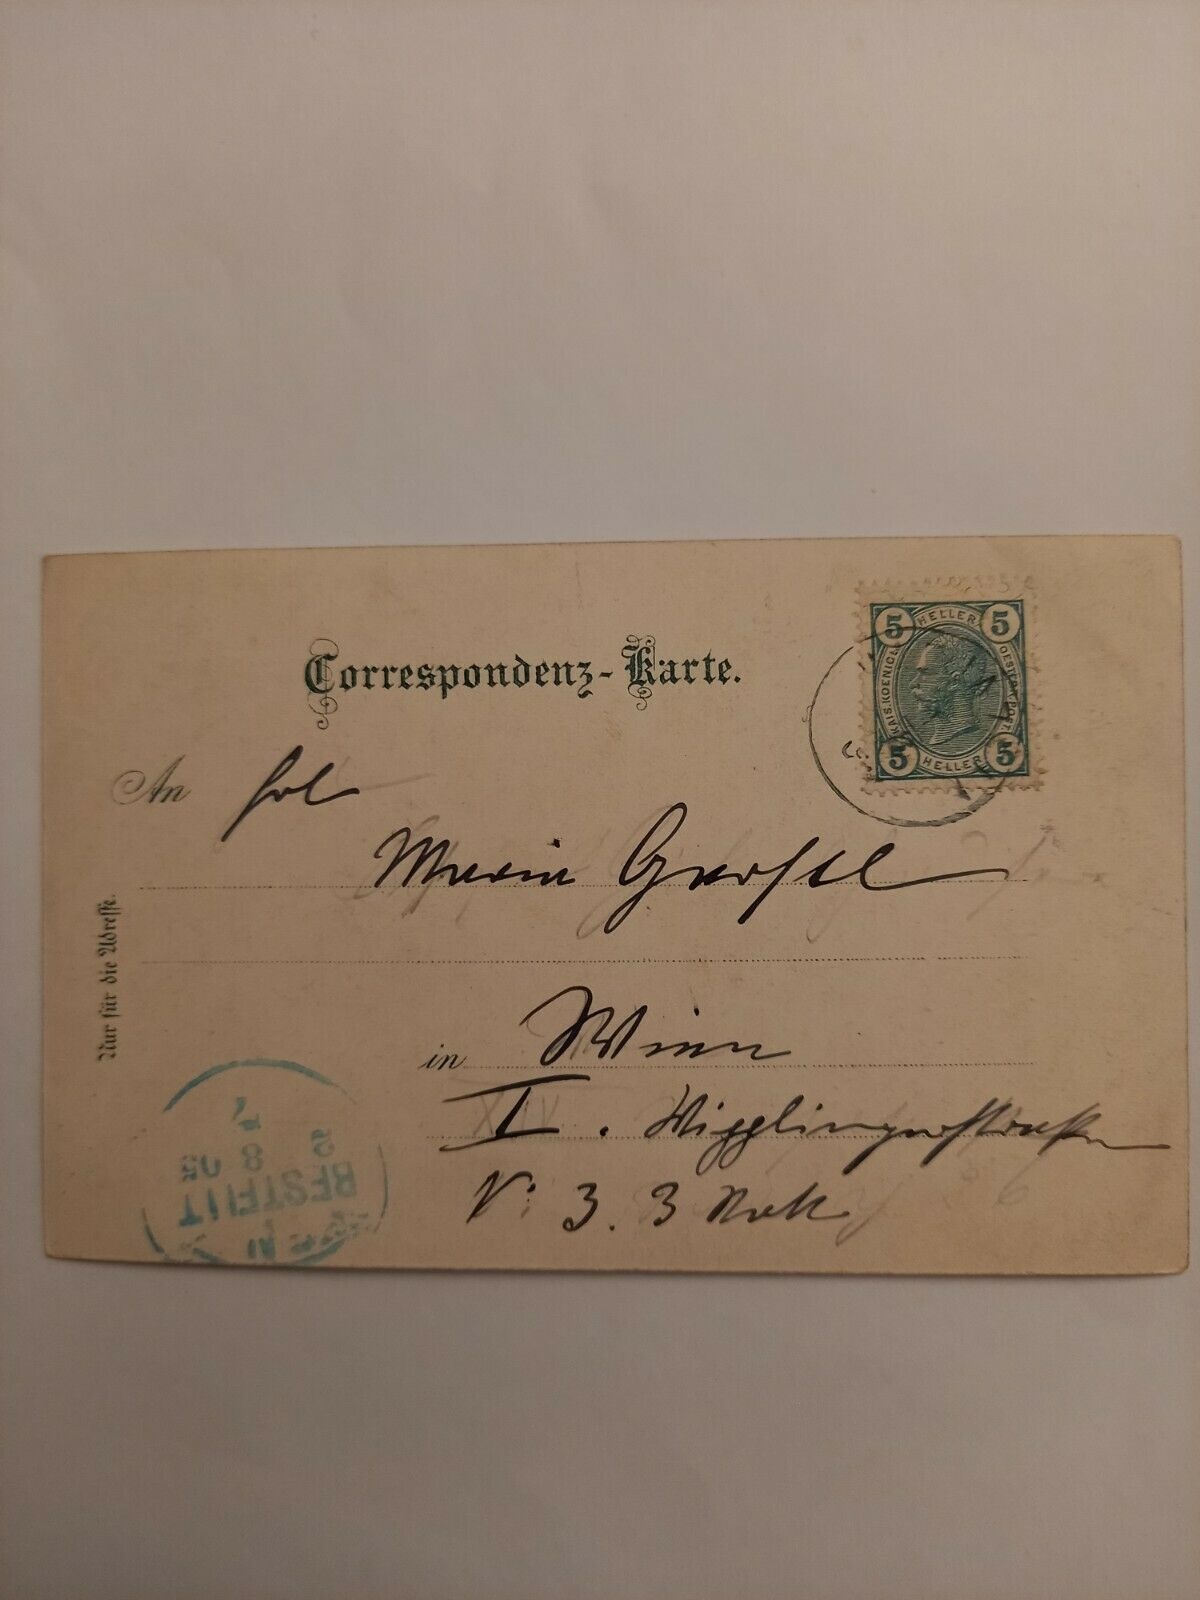 Correspondenz-Karte.
5 HELLER 5
KAIS. KOENIGL. OESTERR. POST.
5 HELLER 5
An Frl
Marie Gerstl
Nur für die Adresse.
in Wien
I.
N: 3. 3
BESTELLT
8 05